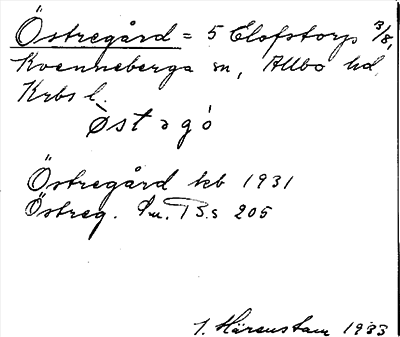 Östregård = 5 Elofstorp 3/8,
Kvenneberga sn, Allbo hd,
Krbs l.
Østrgó
Östregård kb 1931
Östreg. Su. T.B.s 205
I. Härenstam 1933